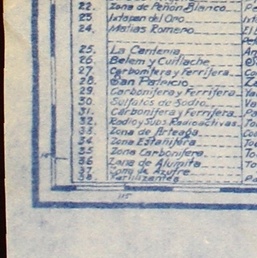 22. Zona de Peñón Blanco
23 Ixtapan del Oro
24. Matías Romero
25. La Ceniena
26. Belem y Cuitlache
27 Carbonifera y Ferrifera
28. San Patricio
29. Carbonifera y Ferrifera
30. Sulfatos de Sodio
31. Carbonifera y Ferrifera
32. Radio y Susp. Radioactivas
33. Zona de Arteaga
34 Zona Estanifera
35 Zona Carbonifera
36 Zona de Alumita
37 Zona de Azufre
38. Fertilizantes
115